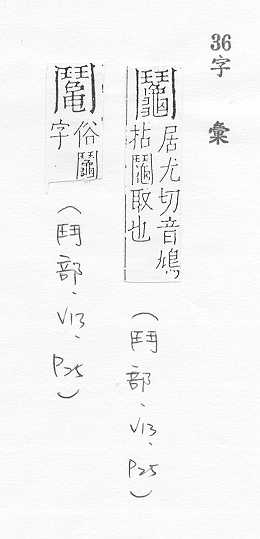 36字 彙
鬮
居尤切音鳩
拈鬮取也
(鬥部、V13、P25)
俗鬮
字
(鬥部、V13、P25)